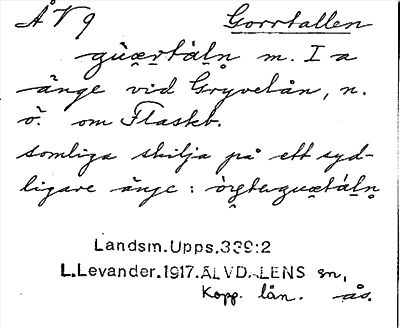 ÅV 9 Gorrtallen
m. I a
änge vid Gryvelån, n.
ö. om Flaskb.
somliga skilja på ett syd-
ligare änje :
Landsm.Upps.339:2
L.Levander.1917.ÄLVD.LENS sn,
Kopp. län. ås.